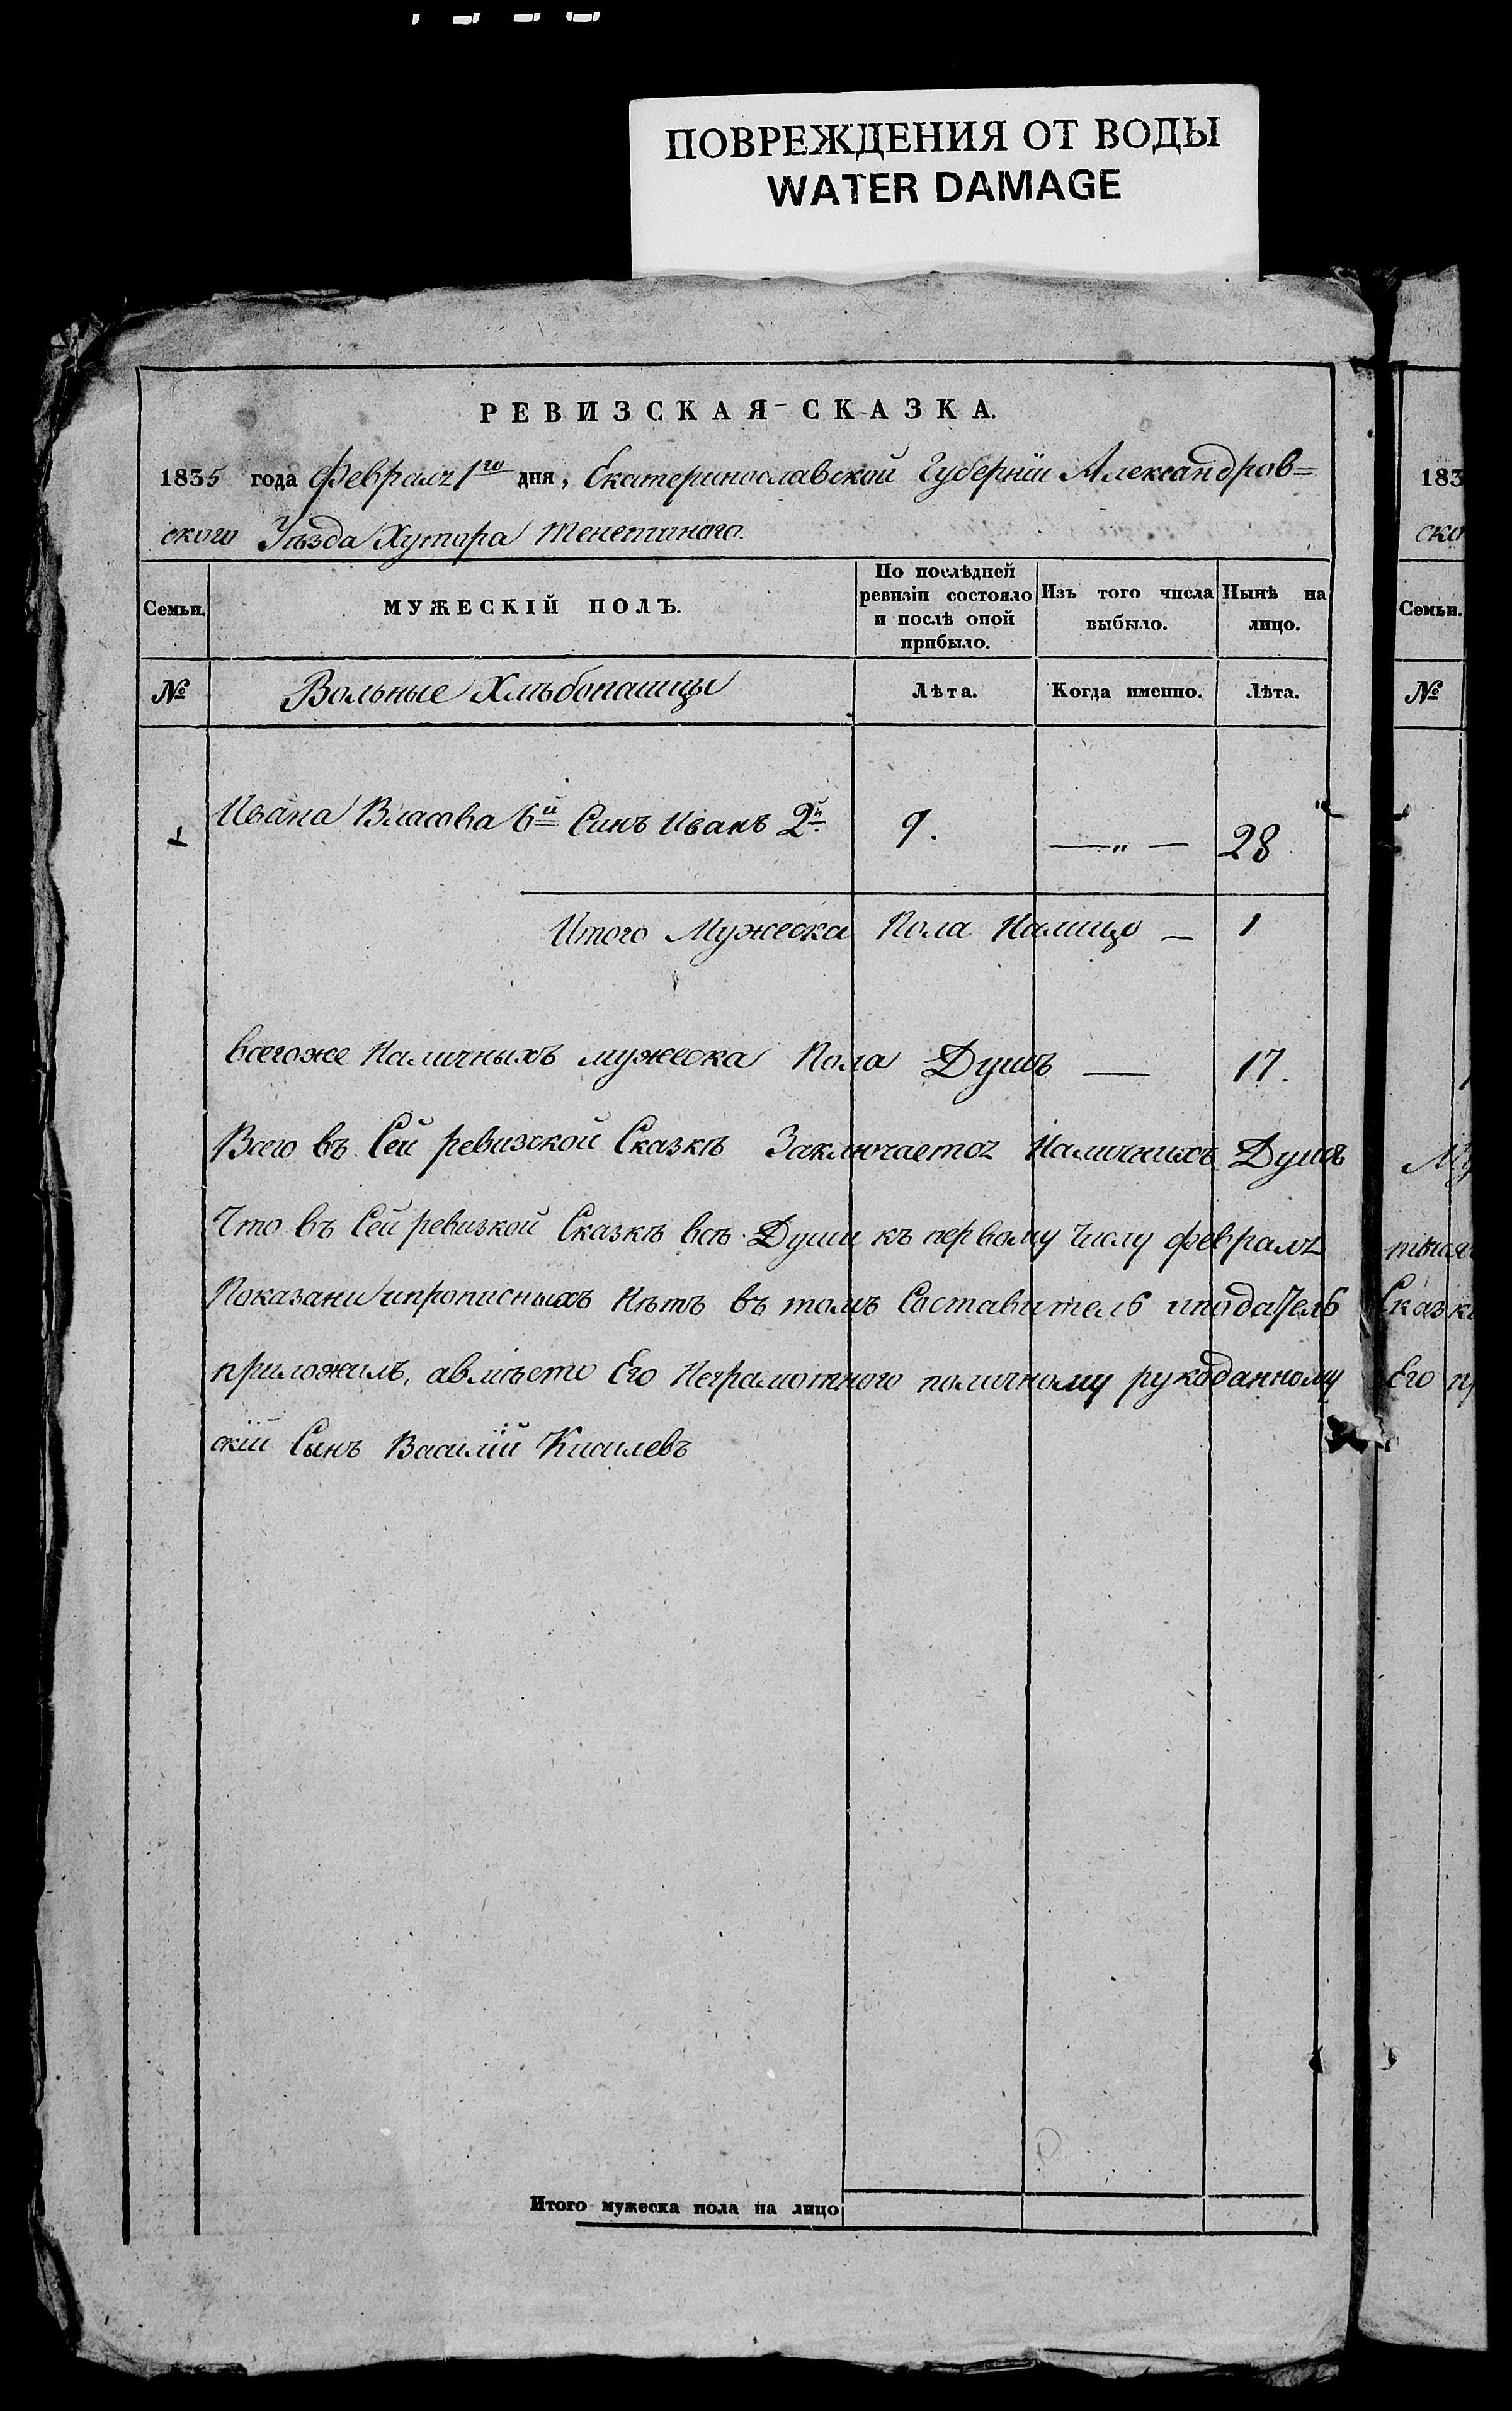 ПОВРЕЖДЕНИЯ ОТ ВОДЫ
WATER DAMAGE
РЕВИЗСКАЯ СКАЗКА.
1835 года Февраля 1го дня, Екатеринославской Губерніи Александров=
ского Уѣзда Хутора
Семьи.
МУЖЕСКІЙ ПОЛЪ.
По послѣдней ревизіи состояло и послѣ оной прибыло.
Изъ того числа выбыло.
Нынѣ на лицо.
№ Вольные Хлѣбопашцы Лѣта. Когда именно. Лѣта.
1 Ивана Власова 6й Синъ Иванъ 2й 9. — „ — 28
Итого Мужеска Пола Налицо — 1
всегоже Наличныхъ мужеска Пола Душъ — 17.
Всего въ Сей ревизской Сказкѣ Заключается Наличнихъ Душъ
Что въ Сей ревизкой Сказкѣ всѣ Души къ первому Числу февраля
Показани ипрописныхъ Нѣтъ въ томъ Составитель иподатель
приложилъ, авмѣсто Его Неграмотного поличному рукоданному
скій Сынъ Василій Кисилевъ
Итого мужеска пола на лицо
183
ско
Семьи.
№
Му
Сказк
Его пр